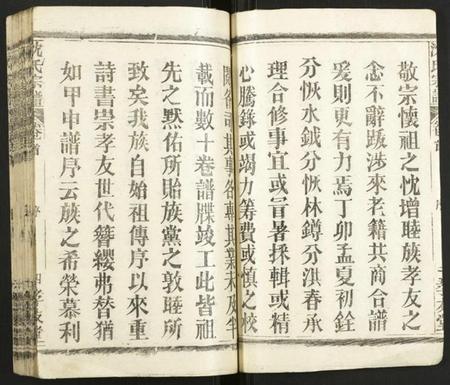 敬宗懷祖之忱增睦族孝友之
念不辭跋涉來老籍共商合譜
爰則更有力焉丁卯孟夏初銓
分恢水鉞分恢林鐏分淇春承
理合修事宜或冒暑採輯或精
心騰錄或竭力籌費或慎之校
載而數十卷譜牒竣工此皆祖
先之黙佑所貽族黨之敦睦所
致矣我族自始祖傳序以來重
詩書崇孝友世代簪纓弗替猶
如甲申譜序云族之希榮慕利
沈氏宗譜
卷首
序